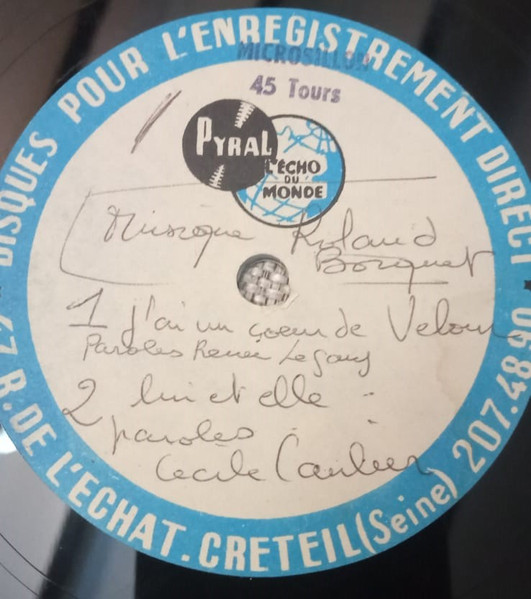 DISQUES POUR L'ENREGISTREMENT DIRECT
MICROSILLON
45 Tours
PYRAL
L'ÉCHO
DU
MONDE
Musique Roland
Bocquet
1 j'ai un coeur de Velour
Paroles Renée
2 lui et elle
paroles
Cecile Caulier
47 R. DE L'ECHAT. CRETEIL (Seine) 207.48.90